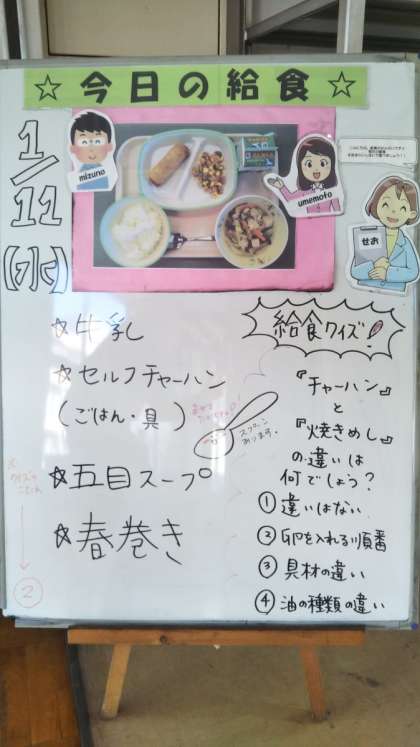 ☆今日の給食☆
1/11
(水)
mizuno
umemoto
せお
☆牛乳
☆セルフチャーハン
(ごはん・具)
スプーン
あります。
☆五目スープ
☆春巻き
給食クイズ!
『チャーハン』
と
『焼きめし』
の違いは
何でしょう?
①違いはない
②卵を入れる順番
③具材の違い
④油の種類の違い
②